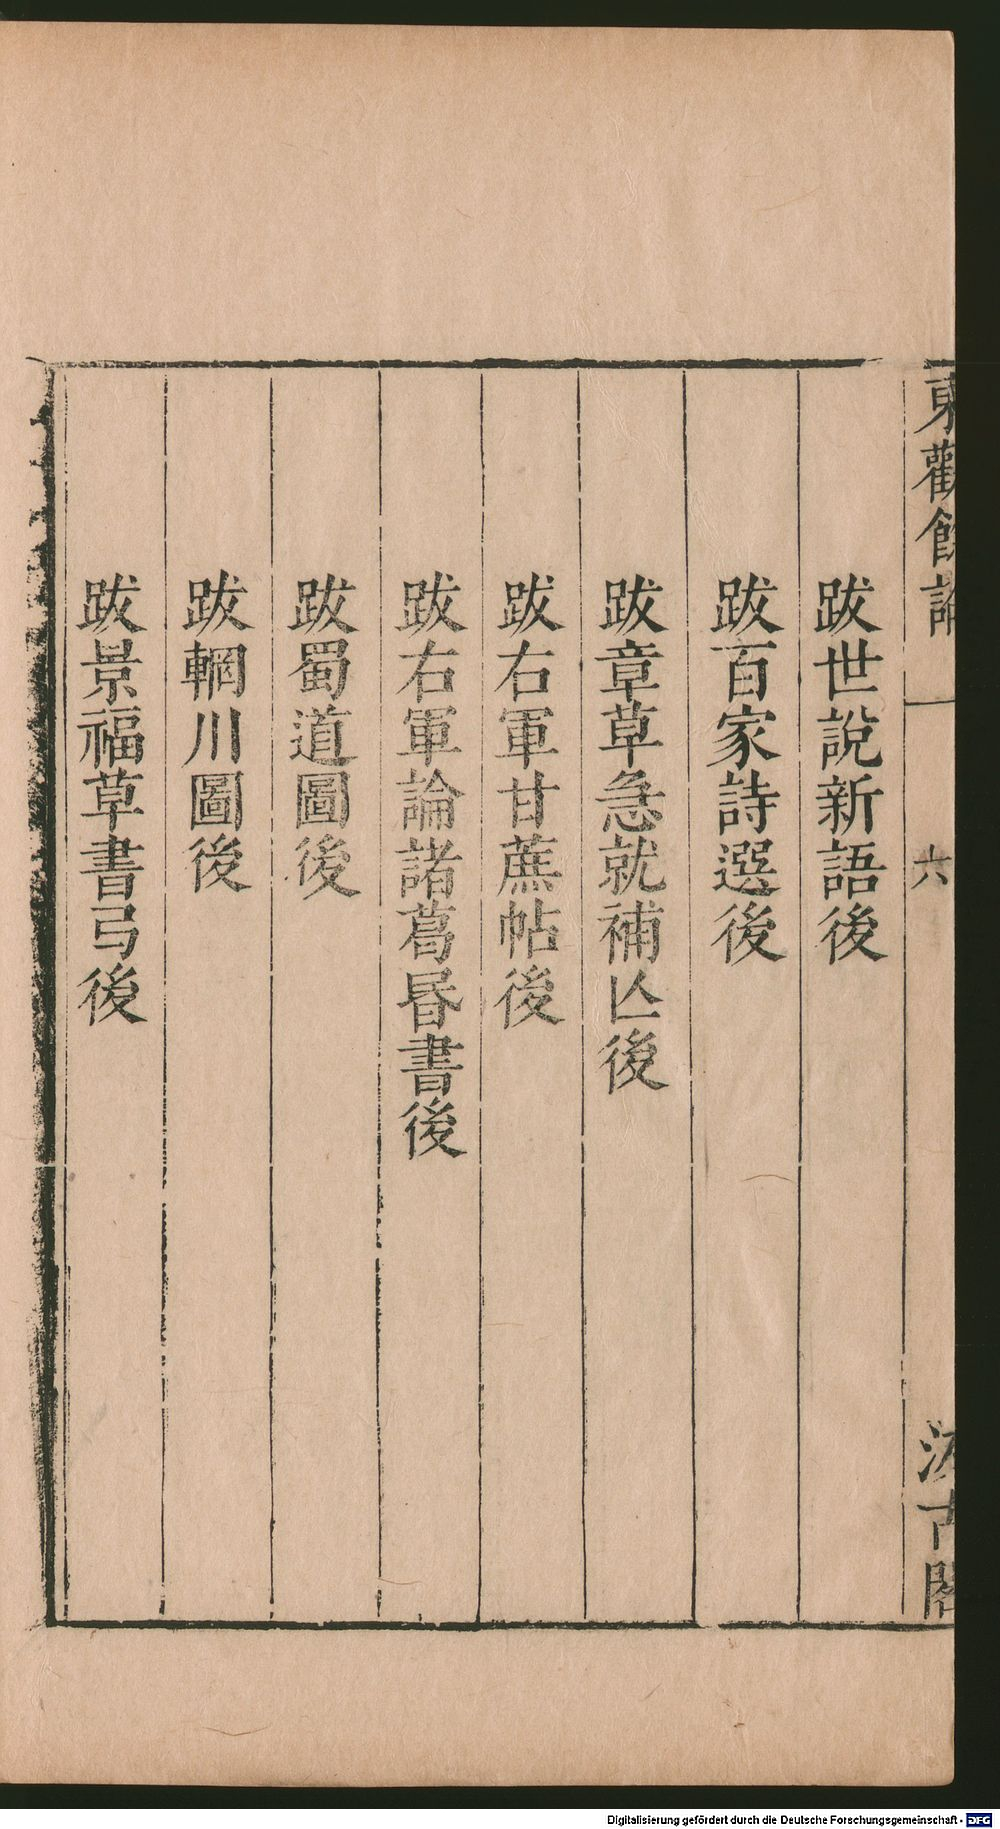 東觀餘論
六
汲古閣
跋世說新語後
跋百家詩選後
跋章草急就補亾後
跋右軍甘蔗帖後
跋右軍論諸葛昬書後
跋蜀道圖後
跋輞川圖後
跋景福草書弓後
Digitalisierung gefördert durch die Deutsche Forschungsgemeinschaft - DFG